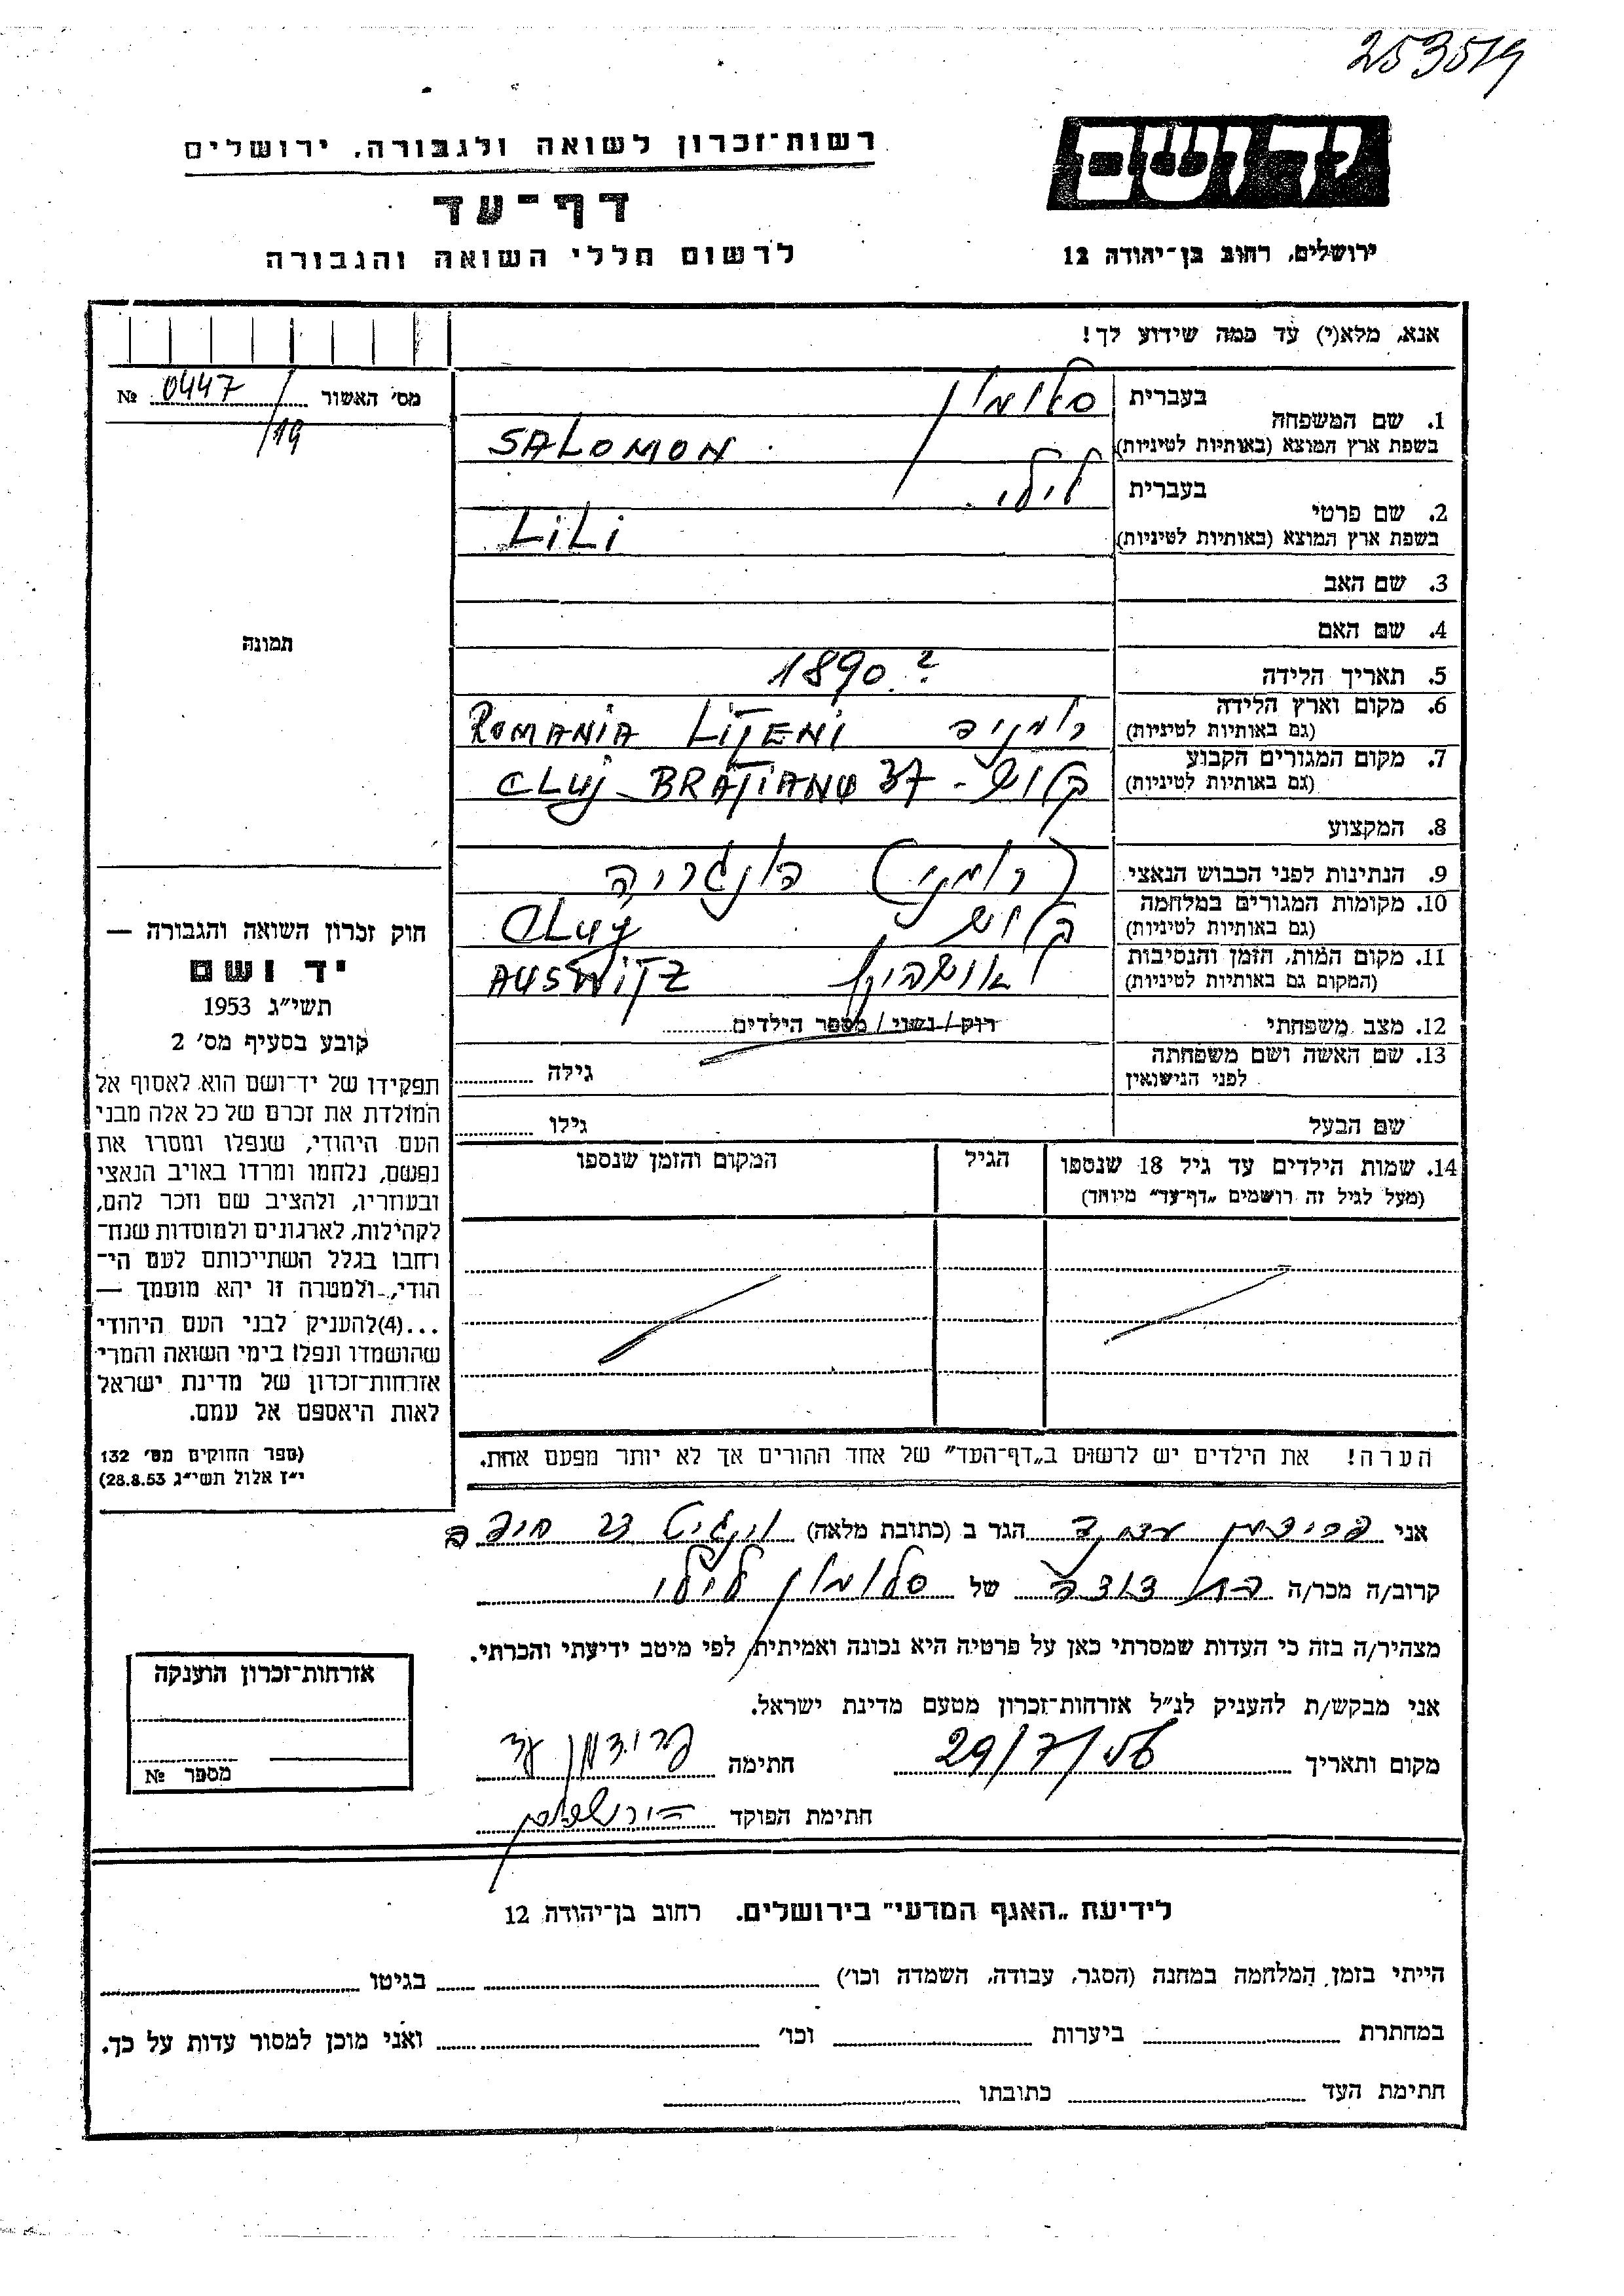 253519
רשות־זכרון לשואה ולגבורה, ירושלים
יד ושם
דף־עד
ירושלים, רחוב בן־יהודה 12
לרשום חללי השואה והגבורה
אנא, מלא(י) עד כמה שידוע לך!
מס׳ האשור 0447 №
/19
1. שם המשפחה
בעברית סלומון
בשפת ארץ המוצא (באותיות לטיניות) SALOMON
2. שם פרטי
בעברית לילי
בשפת ארץ המוצא (באותיות לטיניות) LiLi
3. שם האב
4. שם האם
תמונה
5. תאריך הלידה 1890 ?
6. מקום וארץ הלידה
(גם באותיות לטיניות) רומניה LITENI ROMANIA
7. מקום המגורים הקבוע
(גם באותיות לטיניות) קלוש - CLUJ BRATIANU 37
8. המקצוע
9. הנתינות לפני הכבוש הנאצי (רומני) הונגריה
10. מקומות המגורים במלחמה
(גם באותיות לטיניות) קלוש CLUJ
11. מקום המות, הזמן והנסיבות
(המקום גם באותיות לטיניות) אושביץ AUSWITZ
12. מצב משפחתי רוק / נשוי / מספר הילדים
13. שם האשה ושם משפחתה
לפני הנישואין גילה
שם הבעל גילו
14. שמות הילדים עד גיל 18 שנספו
(מעל לגיל זה רושמים „דף־עד״ מיוחד)
הגיל
המקום והזמן שנספו
חוק זכרון השואה והגבורה —
יד ושם
תשי״ג 1953
קובע בסעיף מס׳ 2
תפקידו של יד־ושם הוא לאסוף אל
המולדת את זכרם של כל אלה מבני
העם היהודי, שנפלו ומסרו את
נפשם, נלחמו ומרדו באויב הנאצי
ובעוזריו, ולהציב שם וזכר להם,
לקהילות, לארגונים ולמוסדות שנח־
רחבו בגלל השתייכותם לעם הי־
הודי, ולמטרה זו יהא מוסמך —
...(4)להעניק לבני העם היהודי
שהושמדו ונפלו בימי השואה והמרי
אזרחות־זכרון של מדינת ישראל
לאות היאספם אל עמם.
(ספר החוקים מס׳ 132
י״ז אלול תשי״ג 28.8.53)
הערה! את הילדים יש לרשום ב„דף־העד״ של אחד ההורים אך לא יותר מפעם אחת.
אני פרידמן הגר ב (כתובת מלאה) וינגיט 23 חיפה
קרוב/ה מכר/ה בת דודה של סלומון לילי
מצהיר/ה בזה כי העדות שמסרתי כאן על פרטיה היא נכונה ואמיתית, לפי מיטב ידיעתי והכרתי.
אני מבקש/ת להעניק לנ״ל אזרחות־זכרון מטעם מדינת ישראל.
מקום ותאריך 29/7/56 חתימה פרידמן
חתימת הפוקד
אזרחות־זכרון הוענקה
מספר №
לידיעת „האגף המדעי״ בירושלים. רחוב בן־יהודה 12
הייתי בזמן המלחמה במחנה (הסגר, עבודה, השמדה וכו׳) בגיטו
במחתרת ביערות וכו׳ ואני מוכן למסור עדות על כך.
חתימת העד כתובתו